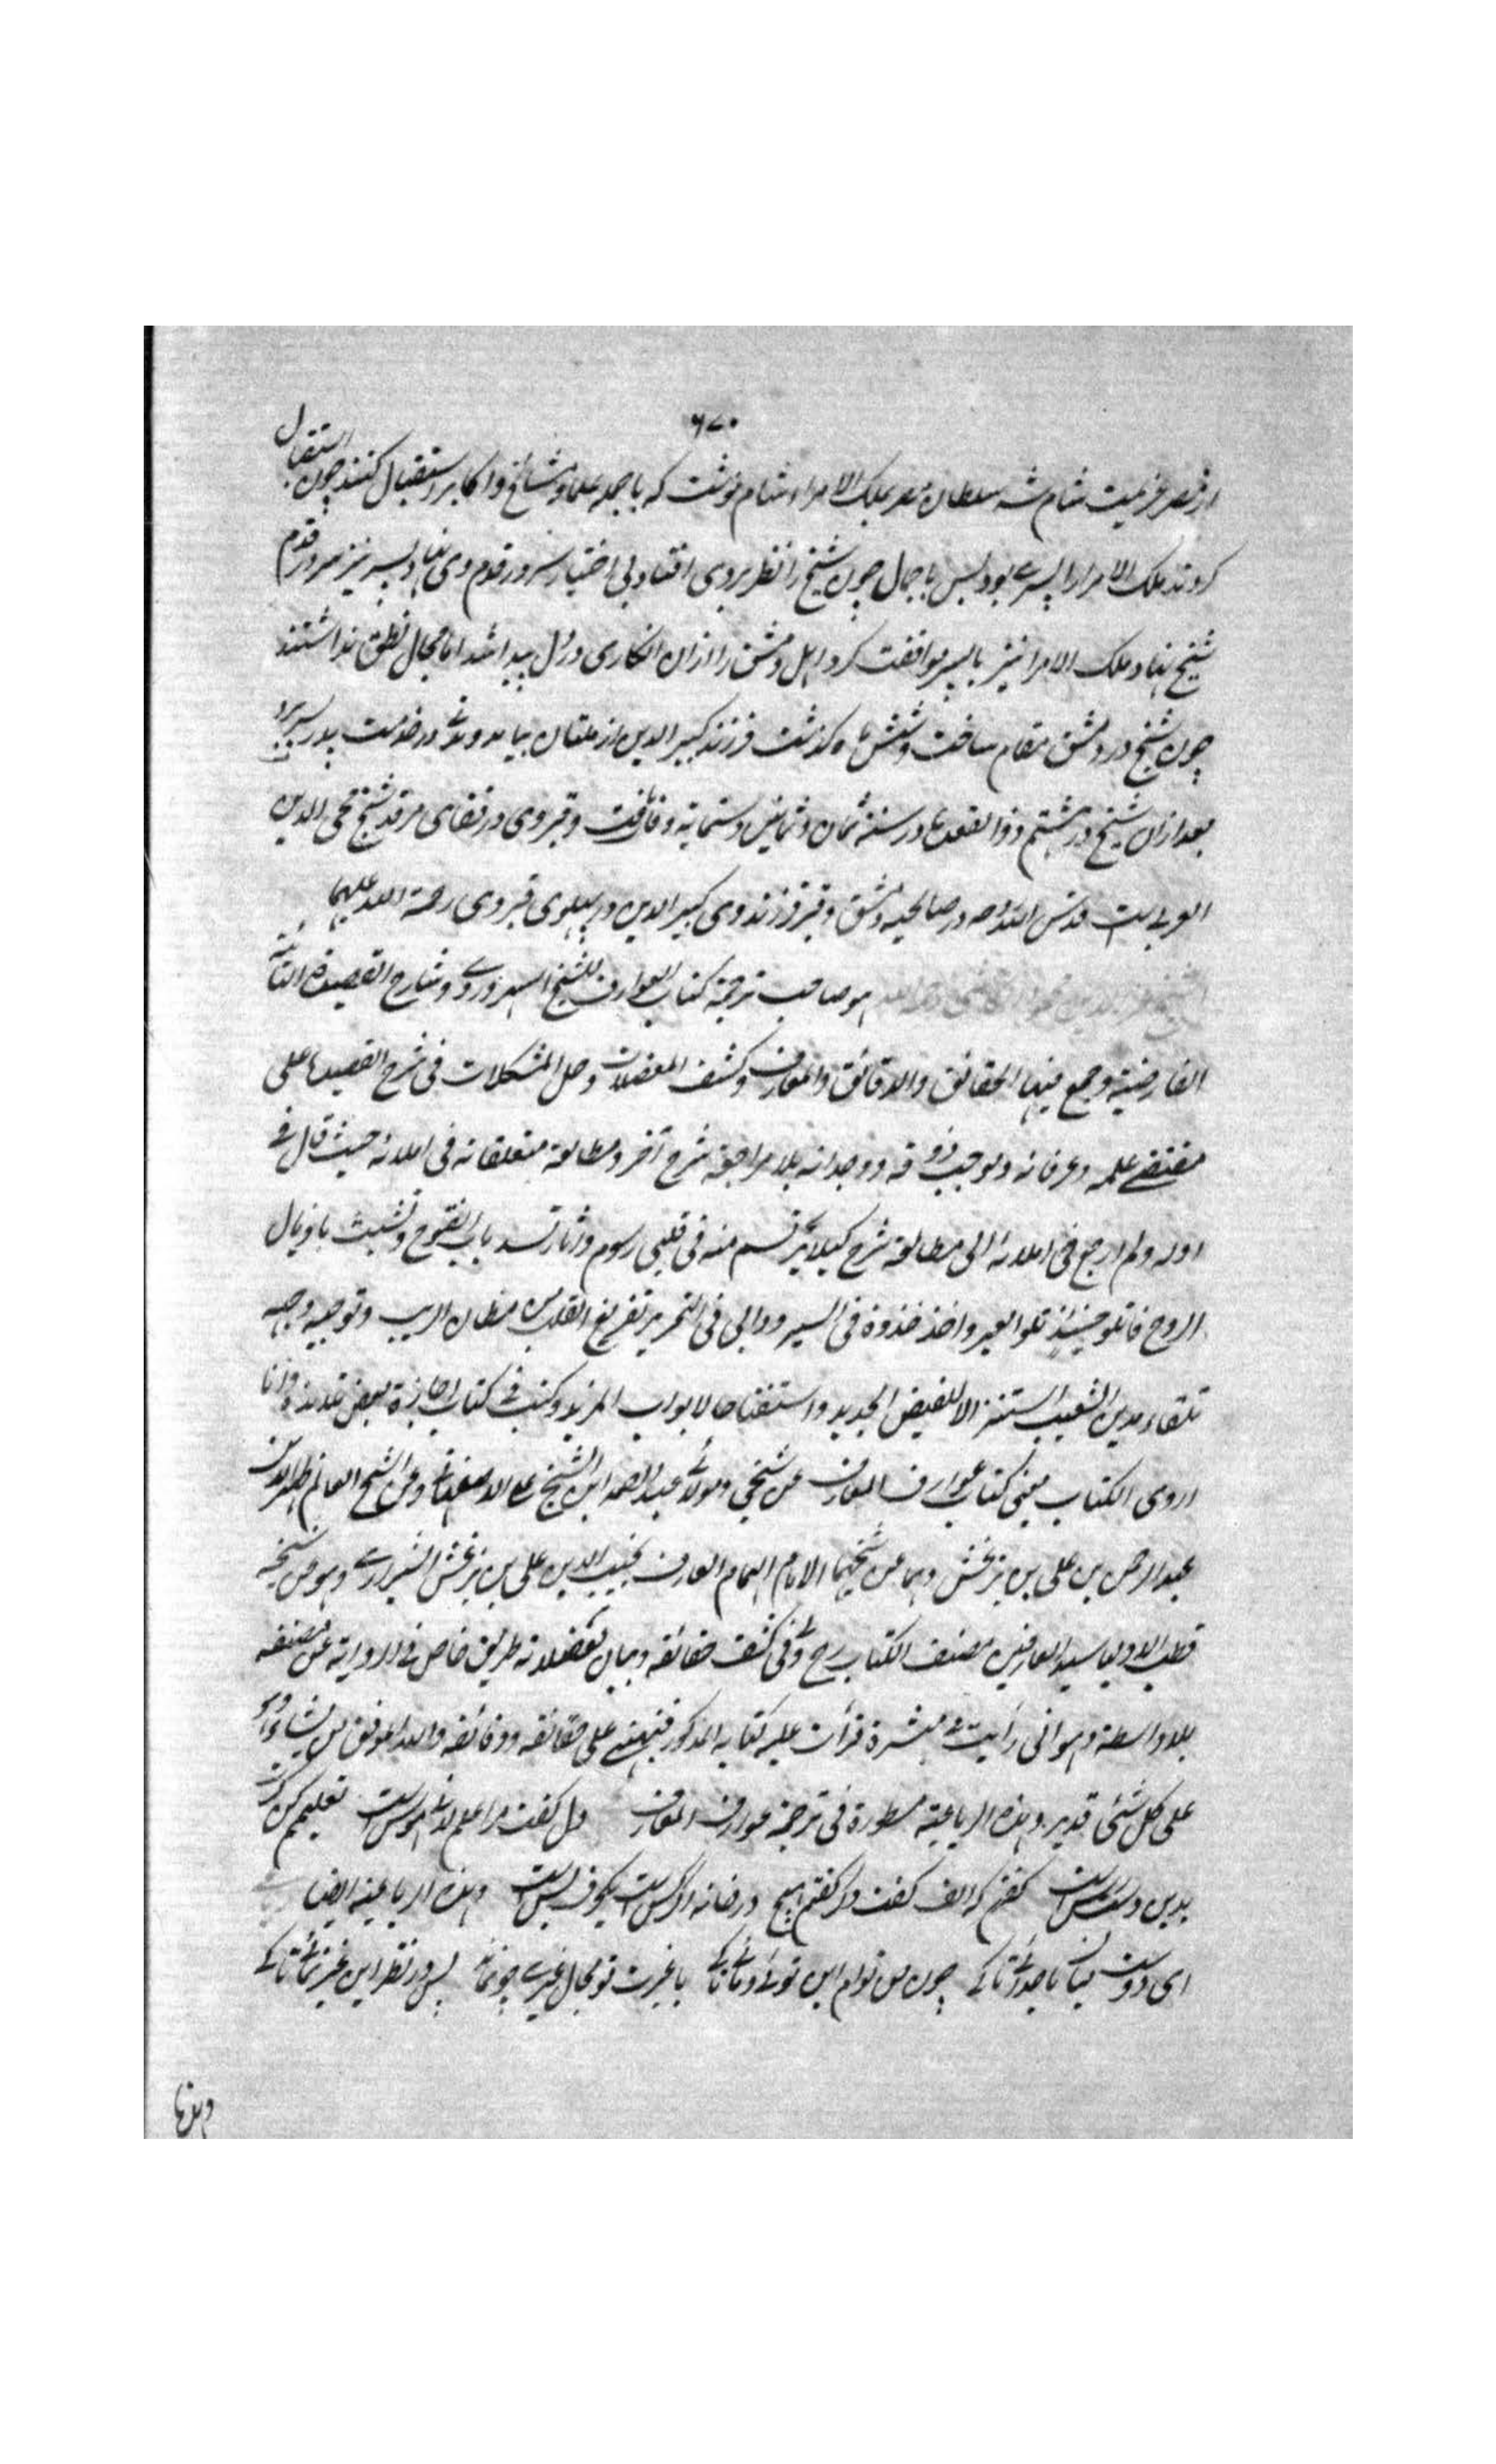 ۶۷۰
از مصر عزیمت شام شد سلطان مصر بملک الامراء شام نوشت که با جمله علما و مشائخ و اکابر استقبال کنند چون استقبال
کردند ملک الامرا را پسری بود بس با جمال چون شیخ را نظر بروی افتاد بی اختیار سر در قدم وی نهاد پسر نیز سر در قدم
شیخ نهاد و ملک الامرا نیز با پسر موافقت کرد اهل دمشق را ازان انکاری در دل پیدا شد اما مجال نطق نداشتند
چون شیخ در دمشق مقام ساخت و شش ماه گذشت فرزند کبیر الدین از ملتان بیامد و مدتی در خدمت پدر بسر برد
بعد ازان شیخ در هشتم ذو القعده در سنه ثمان و ثمانین و ستمایه وفات یافت و قبر وی در قفای مرقد شیخ محی الدین
العربی است قدس الله روحه در صالحیه دمشق و قبر فرزند وی کبیر الدین در پهلوی قبر وی رحمة الله علیهما
الشیخ عز الدین محمود الکاشی رحمه الله هو صاحب ترجمة کتاب العوارف للشیخ السهروردی و شارح القصیدة التائیة
الفارضیة و جمع فیها الحقائق والدقائق والمعارف و کشف المعضلات و حل المشکلات فی شرح القصیدة علی
مقتضی علمه و عرفانه و بموجب ذوقه و وجدانه بلا مراجعة شرح آخر و مطالعة متعلقاته فی املائه حیث قال فی
اوله و لم ارجع فی املائه الی مطالعة شرح کیلا یرتسم منه فی قلبی رسوم و آثار تسد باب الفتوح و تشبث باذیال
الروح فاتلو حینئذ تلو الغیر واحذو حذوه فی السیر و دابی فی التحریر تفریغ القلب من مظان الریب و توجیه وجهه
تلقاء مدین الغیب استنزالا للفیض الجدید و استفتاحا لابواب المزید و کتب فی کتاب اجازة بعض تلامذه و انا
اروی الکتاب یعنی کتاب عوارف المعارف عن شیخی و مولائی عبد الصمد ابن الشیخ علی الاصفهانی و عن الشیخ العالم ظهیر الدین
عبد الرحمن بن علی بن بزغش و هما عن شیخهما الامام الهمام العارف نجیب الدین علی بن بزغش الشیرازی و هو عن شیخه
قطب الاولیا سید العارفین مصنف الکتاب رح ولی فی کشف حقائقه و بیان معضلاته طریق خاص فی الروایة عن مصنفه
بلا واسطة و هو انی رأیت فی مبشرة قرأت علیه کتابه المذکور فنبهنی علی حقائقه و دقائقه والله الموفق لمن یشاء و هو
علی کل شئی قدیر و هذه الرباعیة مسطورة فی ترجمة عوارف المعارف دل گفت مرا علم لدنی هوس است تعلیمم کن گرت
بدین دسترس است گفتم که الف گفت دگر گفتم هیچ در خانه اگر کس است یکحرف بس است و هذه الرباعیة ایضا
ای دوست میان ما جدائی تا کی چون من توام این توئی و مائی تا کی با غیرت تو مجال غیری چو نماند پس در نظر این غیر نمائی تا کی
و هذها